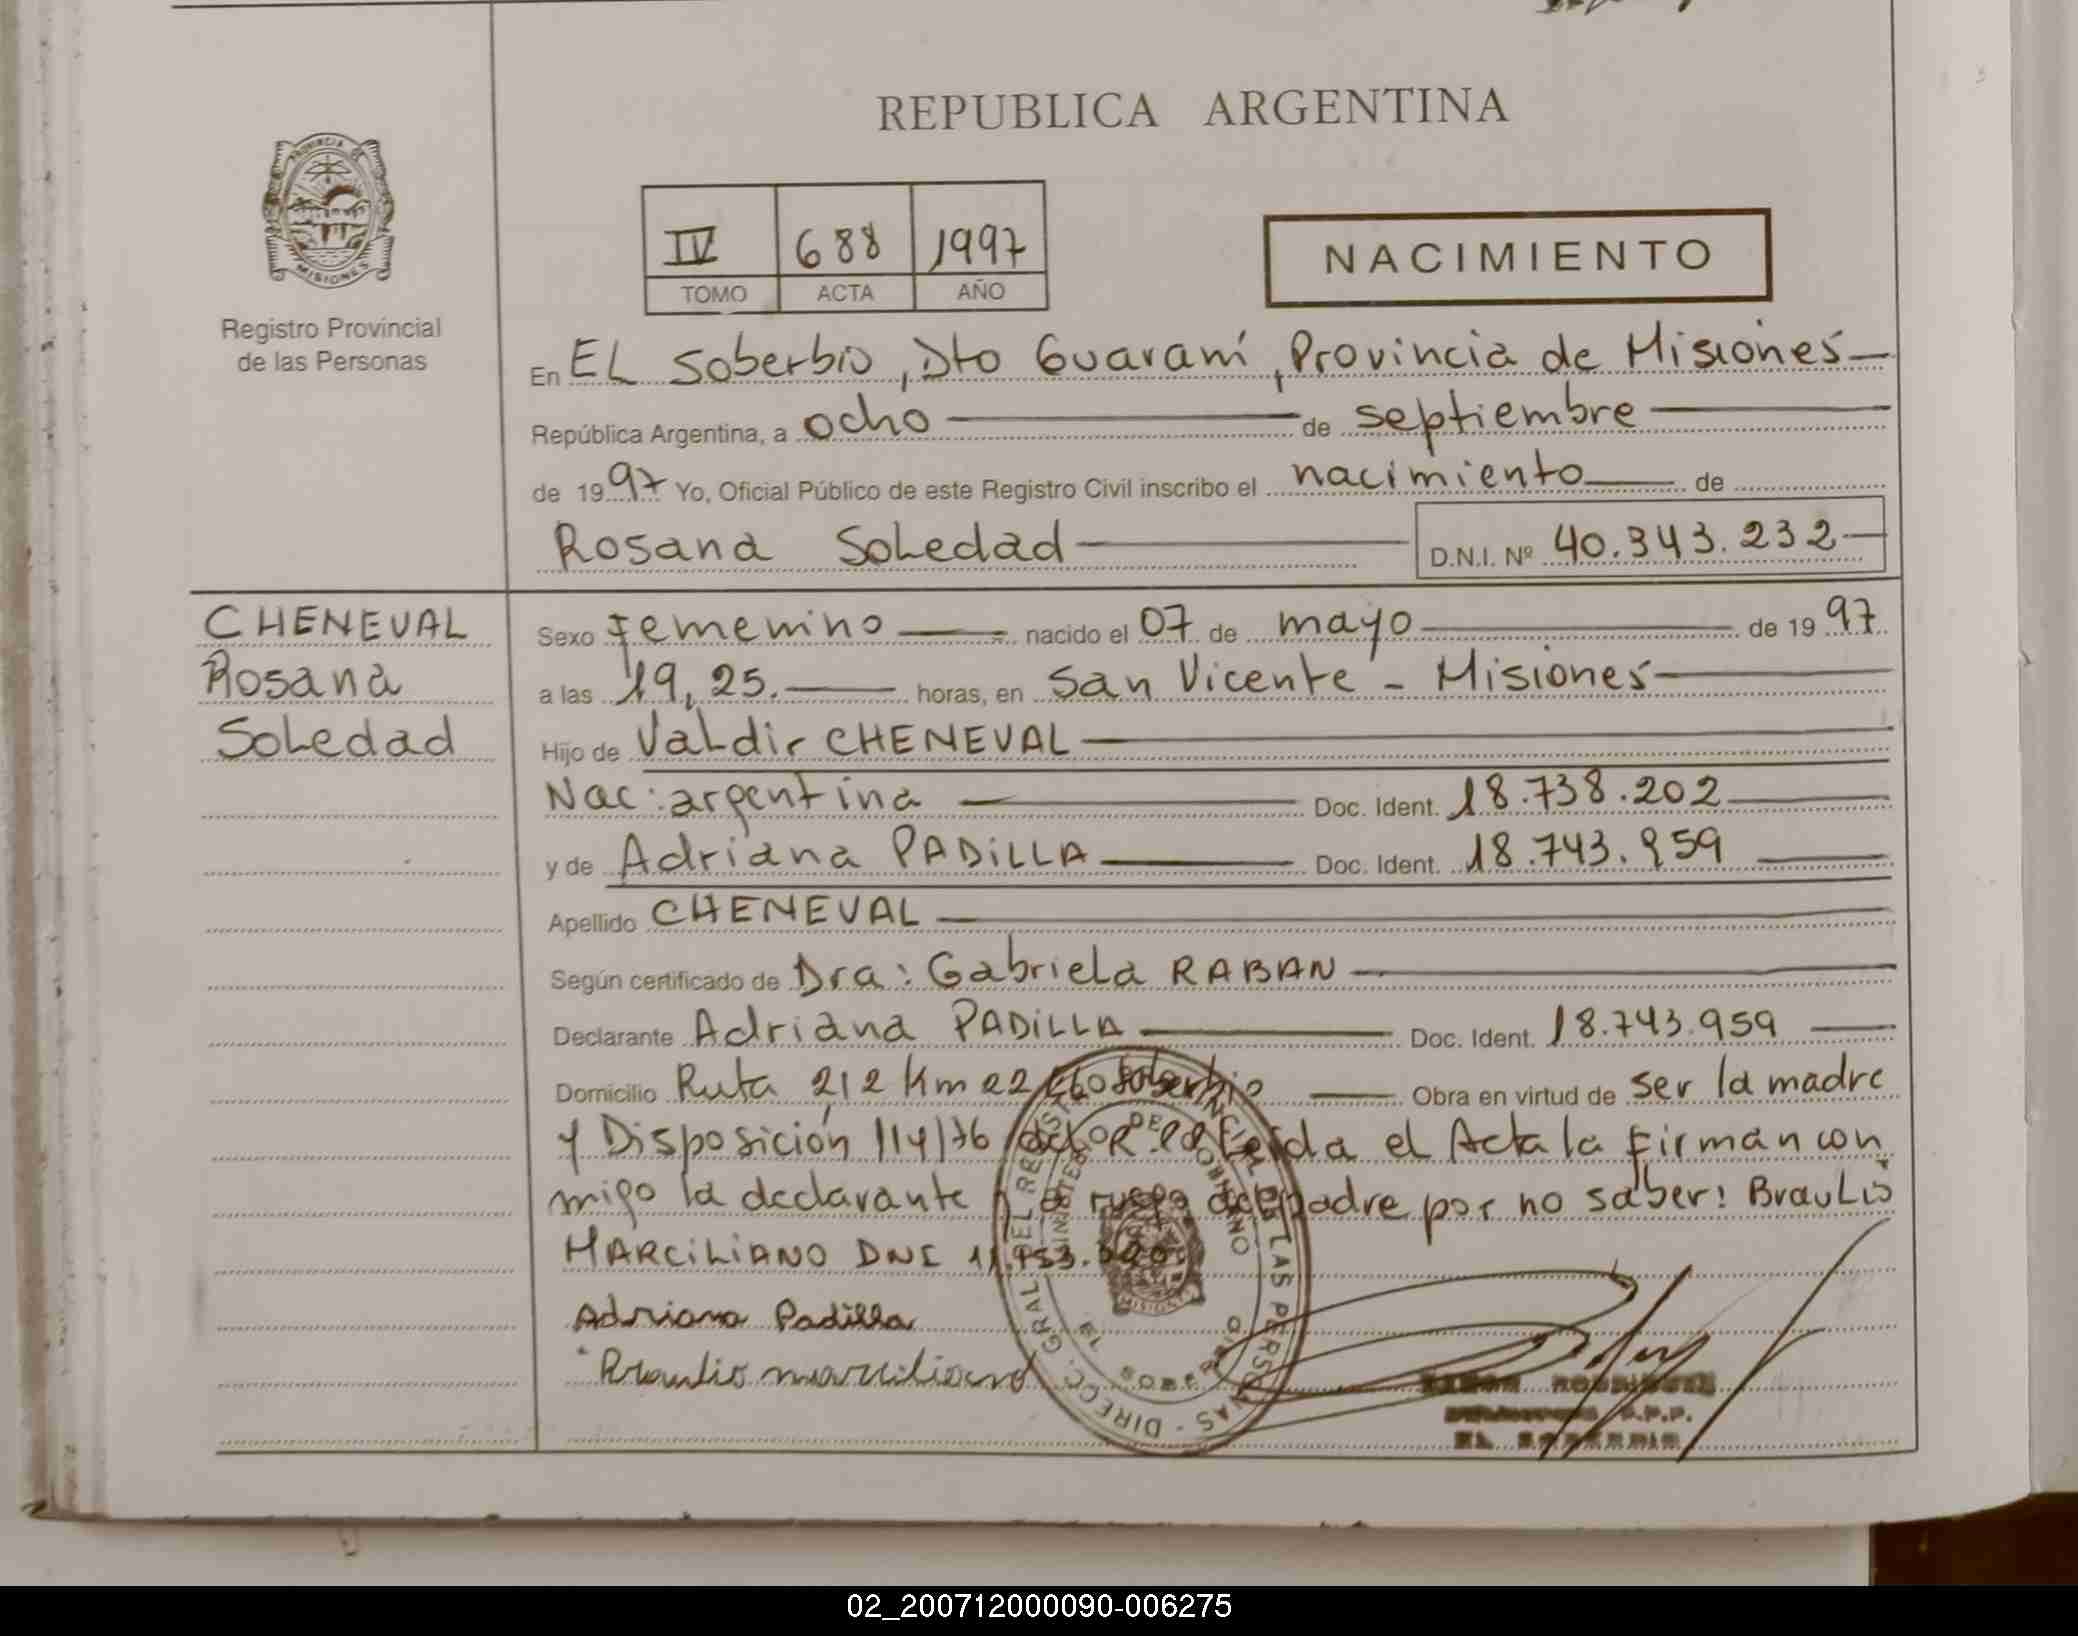 REPUBLICA ARGENTINA
PROVINCIA DE
MISIONES
Registro Provincial
de las Personas
IV 688 1997
TOMO ACTA AÑO
NACIMIENTO
En EL Soberbio, Dto Guaraní, Provincia de Misiones
República Argentina, a ocho de septiembre
de 1997 Yo, Oficial Público de este Registro Civil inscribo el nacimiento de
Rosana Soledad D.N.I. Nº 40.343.232
CHENEVAL
Rosana
Soledad
Sexo Femenino nacido el 07 de mayo de 1997
a las 19,25. horas, en San Vicente - Misiones
Hijo de Valdir CHENEVAL
Nac: argentina Doc. Ident. 18.738.202
y de Adriana PADILLA Doc. Ident. 18.743.959
Apellido CHENEVAL
Según certificado de Dra: Gabriela RABAN
Declarante Adriana PADILLA Doc. Ident. 18.743.959
Domicilio Ruta 212 Km 22 Soberbio Obra en virtud de ser la madre
y Disposición 114/76 el Acta la firman con
migo la declarante a ruego padre por no saber: Braulio
MARCILIANO DNI
Adriana Padilla
Braulio marciliano
DIRECC. GRAL. DEL REGISTRO PROVINCIAL DE LAS PERSONAS
MINISTERIO DE GOBIERNO
MISIONES
SOBERBIO
R.P.P.
EL SOBERBIO
02_200712000090-006275